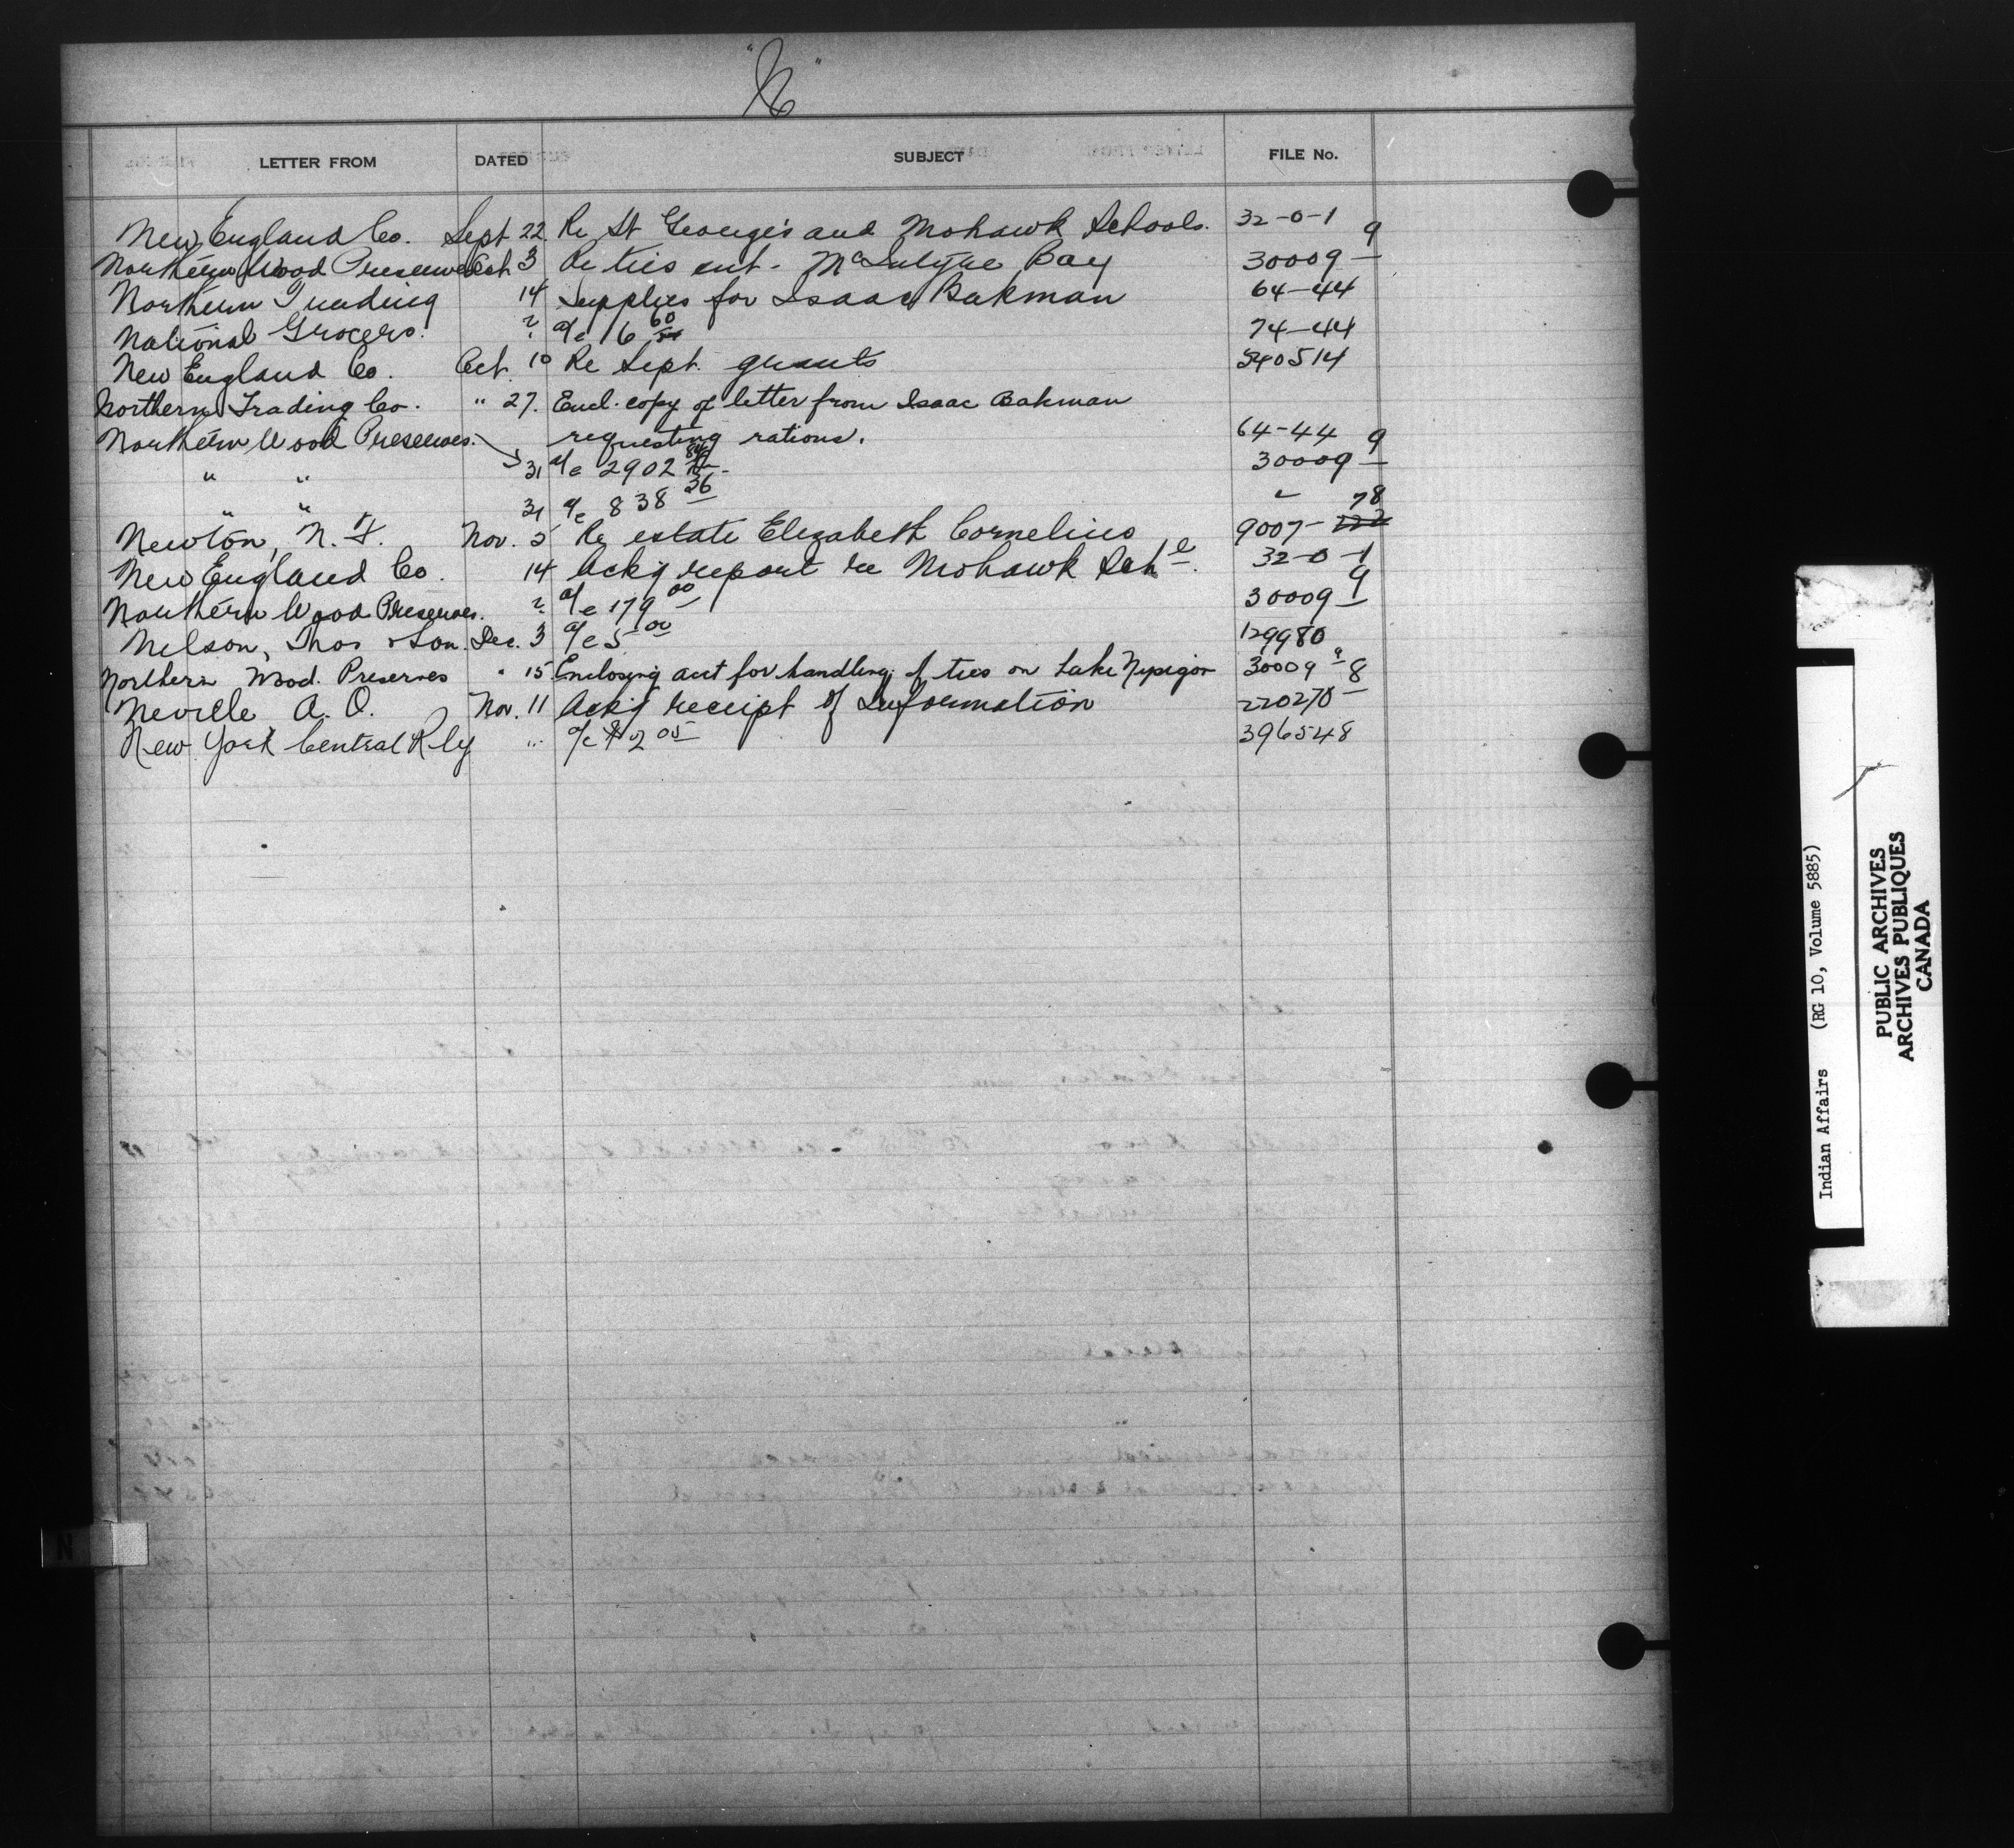 "N"
LETTER FROM DATED SUBJECT FILE No.
New England Co. Sept 22. Re St George's and Mohawk Schools. 32-0-1
Northern Wood Preserves Oct 3 Re ties cut - McIntyre Bay 30009-9
Northern Trading 14 Supplies for Isaac Bakman 64-44
National Grocers. ? a/c 16 60 74-44
New England Co. Oct. 10 Re Sept. grants 540514
Northern Trading Co. " 27. Encl. copy of letter from Isaac Bakman
requesting rations. 64-44
Northern Wood Preserves. 31 a/c 2902 30009-9
" " 31 a/c 838 36 "
Newton, N. Nov. 5 Re estate Elizabeth Cornelius 9007-78
New England Co. 14 Ackg report re Mohawk Schl. 32-0-1
Northern Wood Preserves. ? a/c 179 00 30009-9
Nelson, Thos & Son. Dec. 3 a/c 5 00 129980
Northern Wood. Preserves " 15 Enclosing acct for handling of ties on Lake Nipigon 30009-9
Neville A. O. Nov. 11 Ackg receipt of Information 220270-8
New York Central Rly " a/c $2 05 396548
N
Indian Affairs (RG 10, Volume 5885)
PUBLIC ARCHIVES
ARCHIVES PUBLIQUES
CANADA